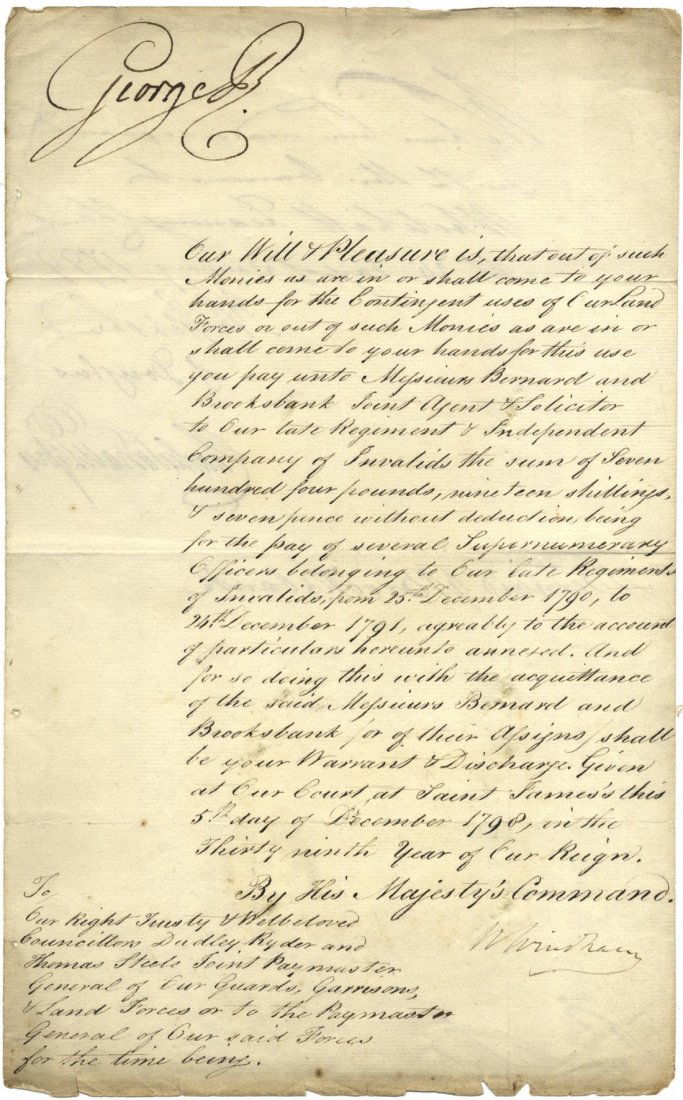 George R.
Our Will & Pleasure is, that out of such
Monies as are in or shall come to your
hands for the Contingent uses of Our Land
Forces or out of such Monies as are in or
shall come to your hands for this use
you pay unto Messieurs Bernard and
Brooksbank Joint Agent & Solicitor
to Our late Regiment & Independent
Company of Invalids the sum of Seven
hundred four pounds, nineteen shillings,
& seven pence without deduction, being
for the pay of several Supernumerary
Officers belonging to Our late Regiments
of Invalids, from 25th December 1790, to
24th December 1791, agreably to the account
of particulars hereunto annexed. And
for so doing this with the acquittance
of the said Messieurs Bernard and
Brooksbank /or of their Assigns/ shall
be your Warrant & Discharge. Given
at Our Court at Saint James's this
5th day of December 1798, in the
Thirty ninth Year of Our Reign.
By His Majesty's Command.
W Windham
To
Our Right Trusty & Welbeloved
Councillors Dudley Ryder and
Thomas Steele Joint Paymaster
General of Our Guards, Garrisons,
& Land Forces or to the Paymaster
General of Our said Forces
for the time being.